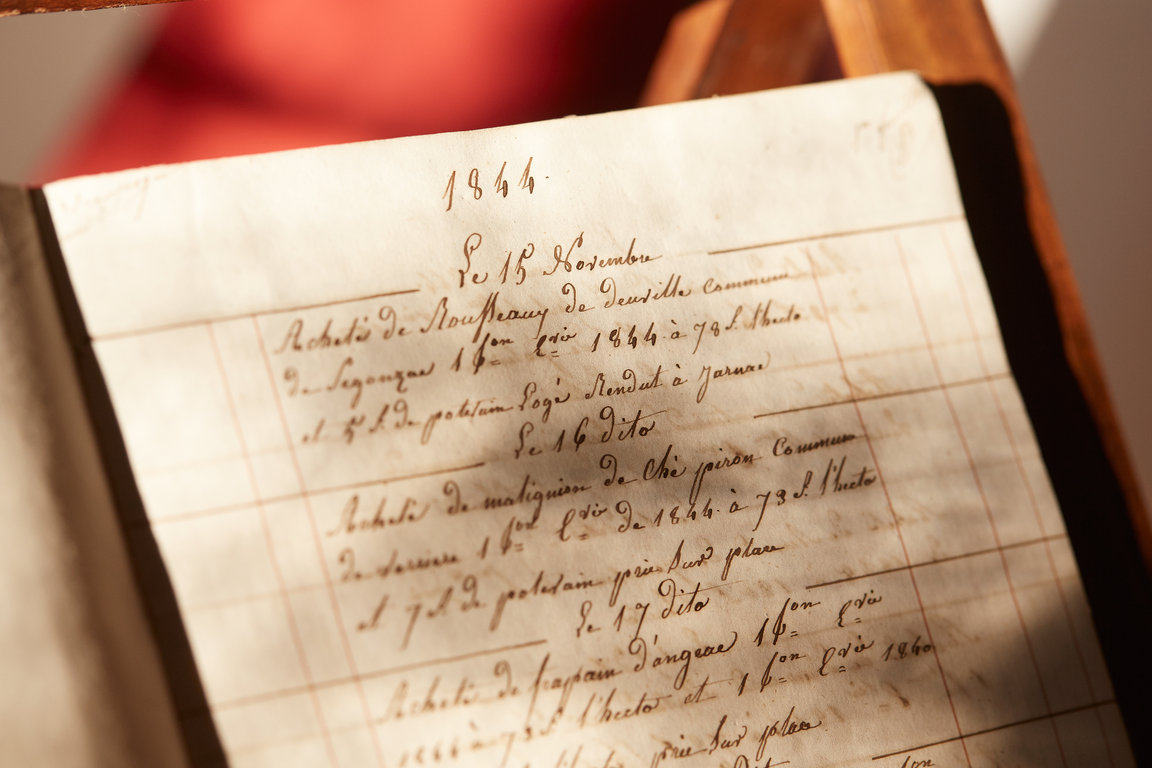 1844.
Le 15 Novembre
Acheté de Rousseaux de deuville commune
de Segonzac 1 fon Evie 1844 à 78 f. l'hecto
et 5 f. de potevain Logé Rendut à Jarnac
Le 16 dito
Acheté de matignion de Ché piron Commune
de Verriere 1 fon Evie De 1844 à 73 f. l'hecto
et 7 f. de potevain prie Sur place
Le 17 dito
Acheté de frapain D'angeac 1 fon Evie
1844 à 73 f. l'hecto et 1 fon Evie 1840
prie Sur place
dito
fon